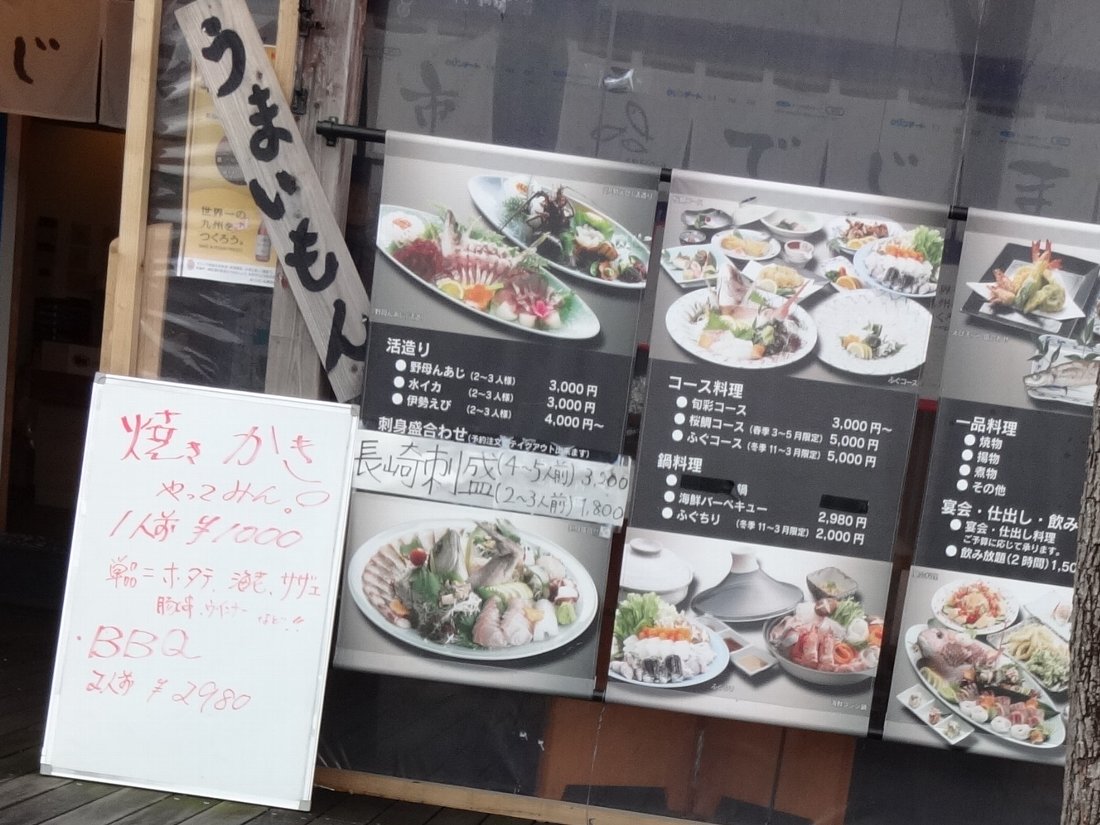 じ
うまいもん
世界一の
九州を
つくろう。
焼きかき
やってみん。
1人前 ¥1000
単品=ホタテ、海老、サザエ
豚串、ウインナー
など!!
・BBQ
2人前 ¥2980
活造り
●野母んあじ (2~3人様) 3,000円
●水イカ (2~3人様) 3,000円
●伊勢えび (2~3人様) 4,000円~
刺身盛合わせ
長崎刺盛 (4~5人前) 3,200
(2~3人前) 1,800
コース料理
●旬彩コース 3,000円~
●桜鯛コース (春季3~5月限定) 5,000円
●ふぐコース (冬季11~3月限定) 5,000円
鍋料理
● 鍋
●海鮮バーベキュー 2,980円
●ふぐちり (冬季11~3月限定) 2,000円
ふぐコース
一品料理
●焼物
●揚物
●煮物
●その他
宴会・仕出し・飲み
●宴会・仕出し料理
ご予算に応じて承ります。
●飲み放題(2時間) 1,50